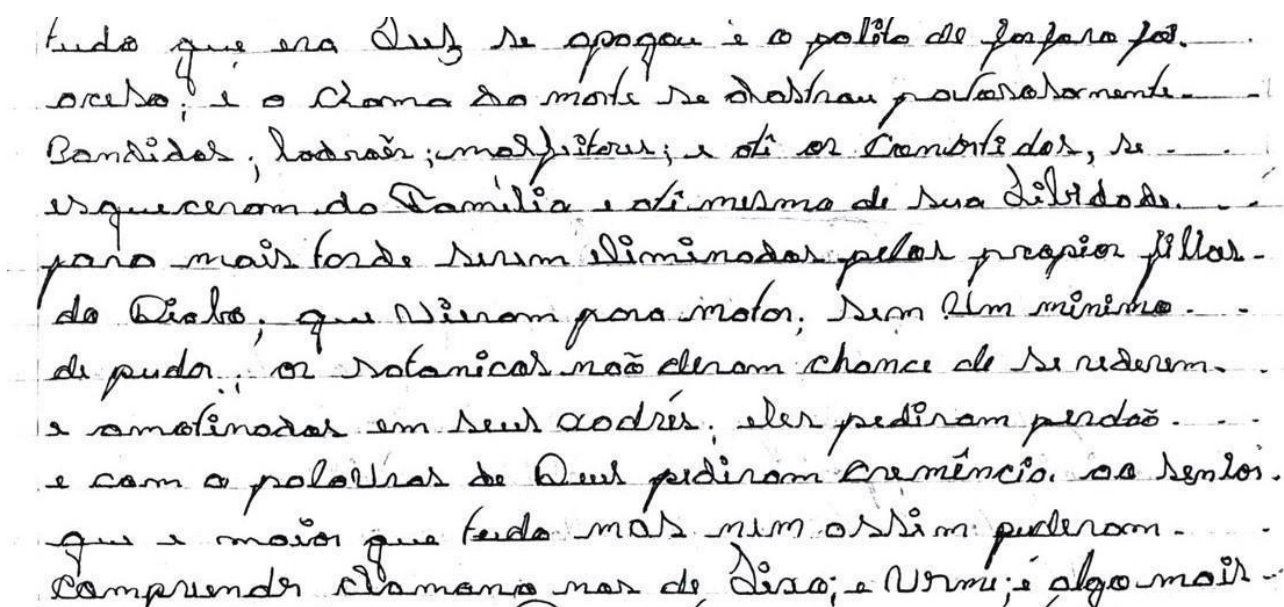 tudo que era Luz se apagou e o palito de fosfaro foi.
aceso; e o chama da morte se alastrau pavarasamente.
Bandidos; ladroẽs; malfeitores; e até os Convertidos, se.
esqueceram da Familia e até mesmo de sua Libidade.
para mais tarde serem eliminados pelos propios fillos.
do Diabo; que Vieram para matar; sem Um minimo.
de pudor; os satanicos naõ deram chance de se rederem.
e amotinados em seus xadrés; eles pediram perdaõ.
e com a palavras de Deus pediram cremência. ao senhor.
que e maior que tudo mas nem assim puderam.
Comprender clamano nos de Lixo; e Vrme; e algo mais